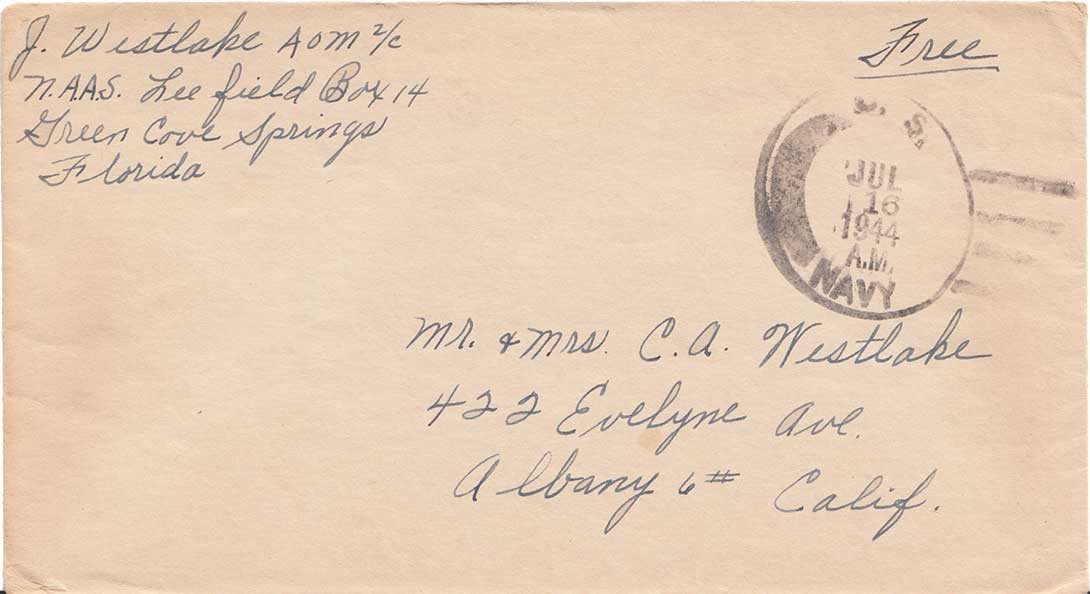 J. Westlake AOM 2/c
N.A.A.S. Lee field Box 14
Green Cove Springs
Florida
Free
U. S.
JUL
16
1944
A.M.
NAVY
Mr. & Mrs. C.A. Westlake
422 Evelyne Ave.
Albany 6# Calif.